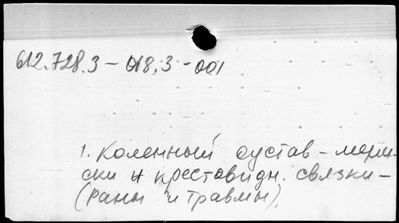 612.728.3-018.3-001
1. Коленный сустав - мени-
ски и крестовидн. связки -
(раны и травмы).